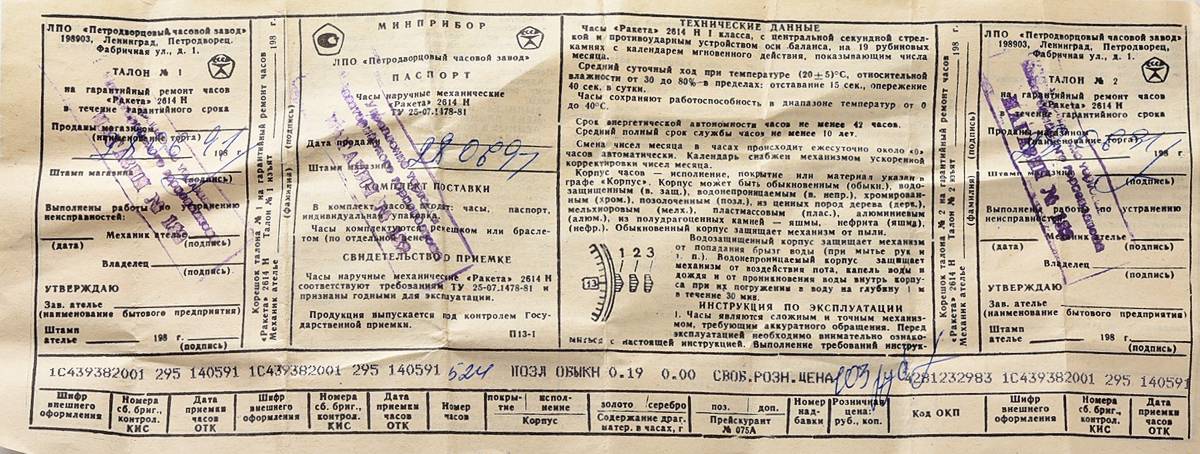 ЛПО «Петродворцовый часовой завод»
198903, Ленинград, Петродворец,
Фабричная ул., д. 1.
ТАЛОН № 1
на гарантийный ремонт часов
«Ракета» 2614 Н
в течение гарантийного срока
Проданы магазином
(наименование торга)
198 г.
Штамп магазина
(подпись)
Выполнены работы по устранению
неисправностей:
Механик ателье
(дата) (подпись)
Владелец
(подпись)
УТВЕРЖДАЮ
Зав. ателье
(наименование бытового предприятия)
Штамп
ателье 198 г.
(подпись)
Корешок талона № 1 на гарантийный ремонт часов 198 г.
«Ракета» 2614 Н Талон № 1 изъят
Механик ателье
(фамилия) (подпись)
МИНПРИБОР
ЛПО «Петродворцовый часовой завод»
ПАСПОРТ
Часы наручные механические
«Ракета» 2614 Н
ТУ 25-07.1478-81
Дата продажи 28 06 91
Штамп магазина
КОМПЛЕКТ ПОСТАВКИ
В комплект часов входят: часы, паспорт,
индивидуальная упаковка.
Часы комплектуются ремешком или брасле-
том (по отдельной цене).
СВИДЕТЕЛЬСТВО О ПРИЕМКЕ
Часы наручные механические «Ракета» 2614 Н
соответствуют требованиям ТУ 25-07.1478-81 и
признаны годными для эксплуатации.
Продукция выпускается под контролем Госу-
дарственной приемки.
П13-1
ТЕХНИЧЕСКИЕ ДАННЫЕ
Часы «Ракета» 2614 Н I класса, с центральной секундной стрел-
кой и противоударным устройством оси баланса, на 19 рубиновых
камнях с календарем мгновенного действия, показывающим числа
месяца.
Средний суточный ход при температуре (20±5)°С, относительной
влажности от 30 до 80% в пределах: отставание 15 сек., опережение
40 сек. в сутки.
Часы сохраняют работоспособность в диапазоне температур от 0
до 40°С.
Срок энергетической автономности часов не менее 42 часов.
Средний полный срок службы часов не менее 10 лет.
Смена чисел месяца в часах происходит ежесуточно около «0»
часов автоматически. Календарь снабжен механизмом ускоренной
корректировки чисел месяца.
Корпус часов — исполнение, покрытие или материал указан в
графе «Корпус». Корпус может быть обыкновенным (обыкн.), водо-
защищенным (в. защ.), водонепроницаемым (в. непр.), хромирован-
ным (хром.), позолоченным (позл.), из ценных пород дерева (дерв.),
мельхиоровым (мелх.), пластмассовым (плас.), алюминиевым
(алюм.), из полудрагоценных камней — яшмы, нефрита (яшма),
(нефр.). Обыкновенный корпус защищает механизм от пыли.
Водозащищенный корпус защищает механизм
от попадания брызг воды (при мытье рук и
т. п.). Водонепроницаемый корпус защищает
механизм от воздействия пота, капель воды и
дождя и от проникновения воды внутрь корпу-
са при их погружении в воду на глубину 1 м
в течение 30 мин.
1 2 3
13
ИНСТРУКЦИЯ ПО ЭКСПЛУАТАЦИИ
1. Часы являются сложным и точным механиз-
мом, требующим аккуратного обращения. Перед
эксплуатацией необходимо внимательно ознако-
миться с настоящей инструкцией. Выполнение требований инструк-
Корешок талона № 2 на гарантийный ремонт часов 198 г.
«Ракета» 2614 Н Талон № 2 изъят
Механик ателье
(фамилия) (подпись)
ЛПО «Петродворцовый часовой завод»
198903, Ленинград, Петродворец,
Фабричная ул., д. 1.
ТАЛОН № 2
на гарантийный ремонт часов
«Ракета» 2614 Н
в течение гарантийного срока
Проданы магазином
(наименование торга)
198 г.
Штамп магазина
(подпись)
Выполнены работы по устранению
неисправностей:
Механик ателье
(дата) (подпись)
Владелец
(подпись)
УТВЕРЖДАЮ
Зав. ателье
(наименование бытового предприятия)
Штамп
ателье 198 г.
(подпись)
1С439382001 295 140591 1С439382001 295 140591 524 ПОЗЛ ОБЫКН 0.19 0.00 СВОБ.РОЗН.ЦЕНА 103 руб 4281232983 1С439382001 295 140591
Шифр внешнего оформления
Номера сб. бриг., контрол. КИС
Дата приемки часов ОТК
Шифр внешнего оформления
Номера сб. бриг., контрол. КИС
Дата приемки часов ОТК
Номер часов
покры-тие
испол-нение
Корпус
золото серебро
Содержание драг. матер. в часах, г
поз. доп.
Прейскурант № 075А
Номер над-бавки
Розничная цена: руб., коп.
Код ОКП
Шифр внешнего оформления
Номера сб. бриг., контрол. КИС
Дата приемки часов ОТК